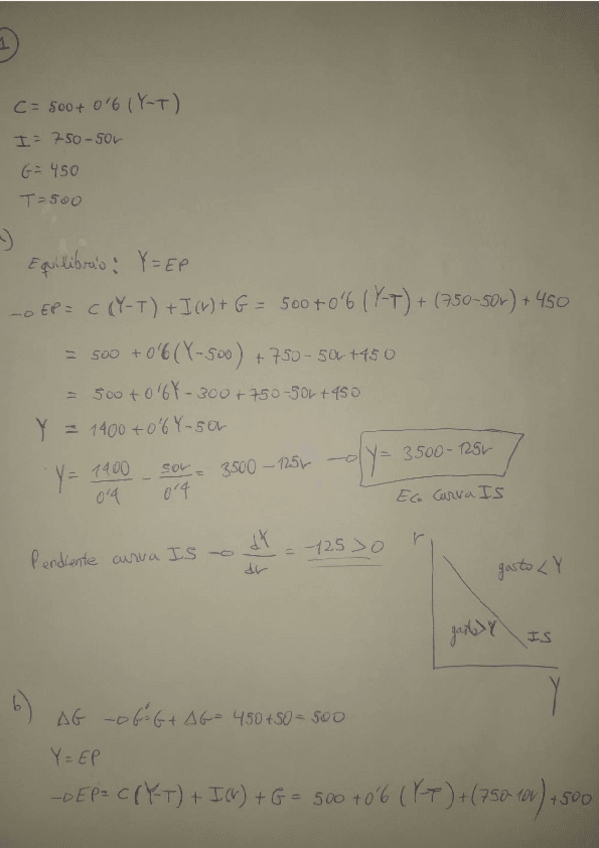 1
C = 500 + 0'6 (Y-T)
I = 750 - 50r
G = 450
T = 500
a)
Equilibrio: Y = EP
→ EP = C (Y-T) + I(r) + G = 500 + 0'6 (Y-T) + (750-50r) + 450
= 500 + 0'6 (Y-500) + 750 - 50r + 450
= 500 + 0'6Y - 300 + 750 - 50r + 450
Y = 1400 + 0'6Y - 50r
Y = 1400/0'4 - 50r/0'4 = 3500 - 125r → Y = 3500 - 125r
Ec. Curva IS
Pendiente curva IS → dY/dr = -125 > 0
r
gasto < Y
gasto > Y
IS
Y
b)
ΔG → G' = G + ΔG = 450 + 50 = 500
Y = EP
→ EP = C (Y-T) + I(r) + G = 500 + 0'6 (Y-T) + (750-10r) + 500